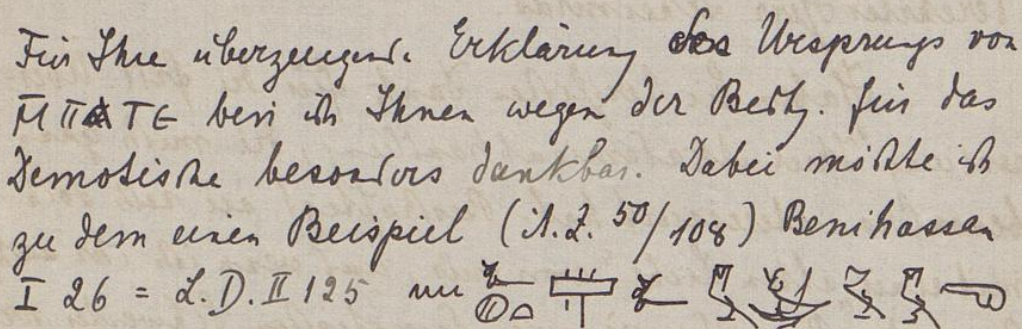 Für Ihre überzeugende Erklärung des Ursprungs von
ⲘⲠⲀⲦⲈ bin ich Ihnen wegen der Bestg. für das
Demotische besonders dankbar. Dabei möchte ich
zu dem einen Beispiel (Ä.Z. 50/108) Benihassan
I 26 = L.D. II 125 nur